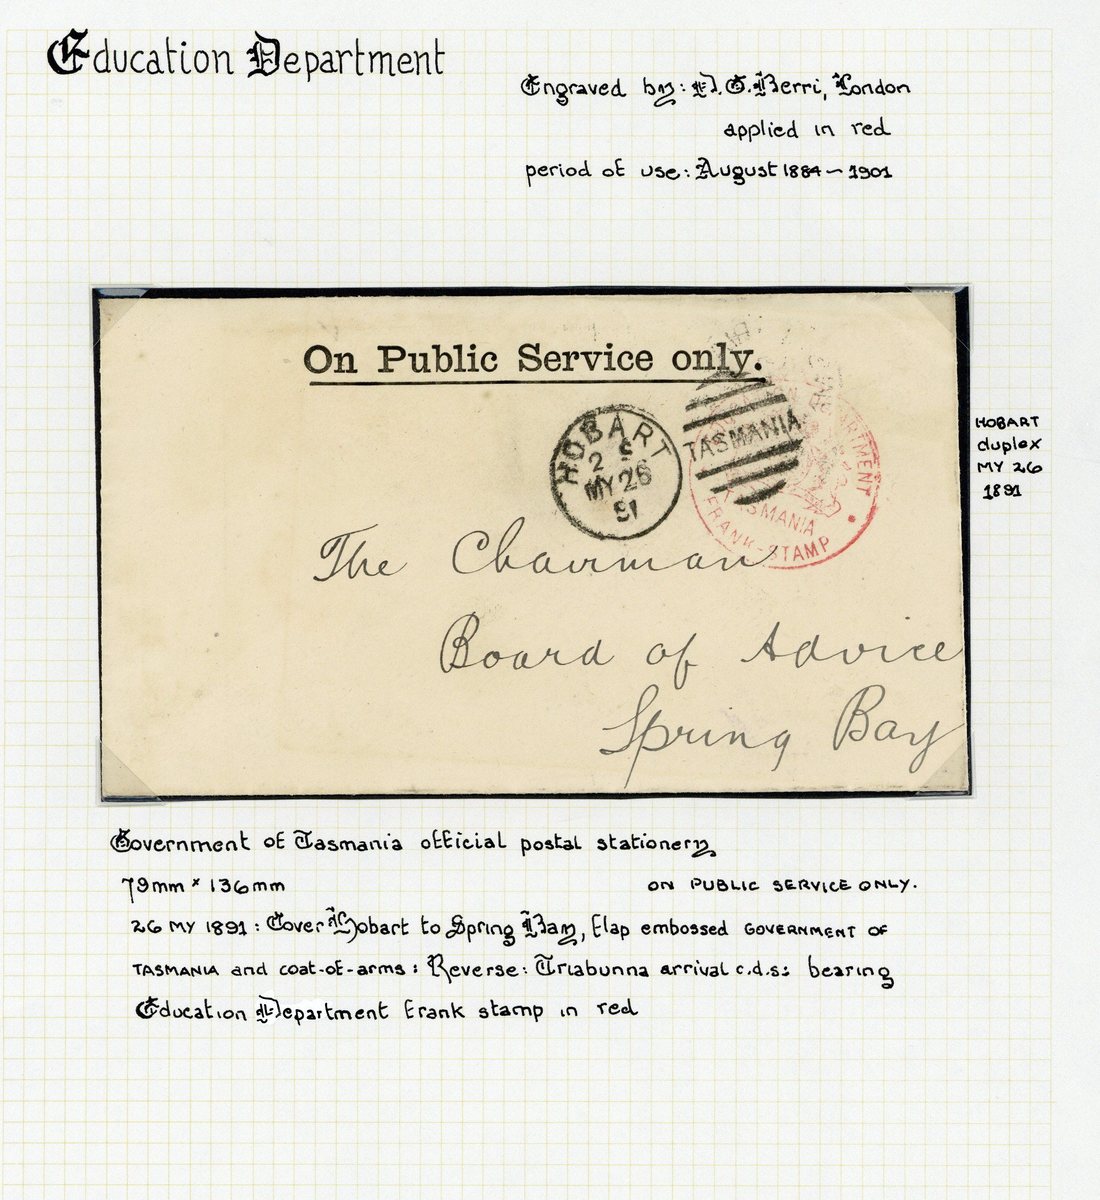 Education Department
Engraved by: D.G. Berri, London
applied in red
period of use: August 1884 – 1901
On Public Service only.
HOBART
2 S
MY 26
91
TASMANIA
TASMANIA
FRANK-STAMP
HOBART
duplex
MY 26
1891
The Chairman
Board of Advice
Spring Bay
Government of Tasmania official postal stationery
79mm x 136mm ON PUBLIC SERVICE ONLY.
26 MY 1891: Cover Hobart to Spring Bay, flap embossed GOVERNMENT OF
TASMANIA and coat-of-arms: Reverse: Triabunna arrival c.d.s: bearing
Education Department frank stamp in red